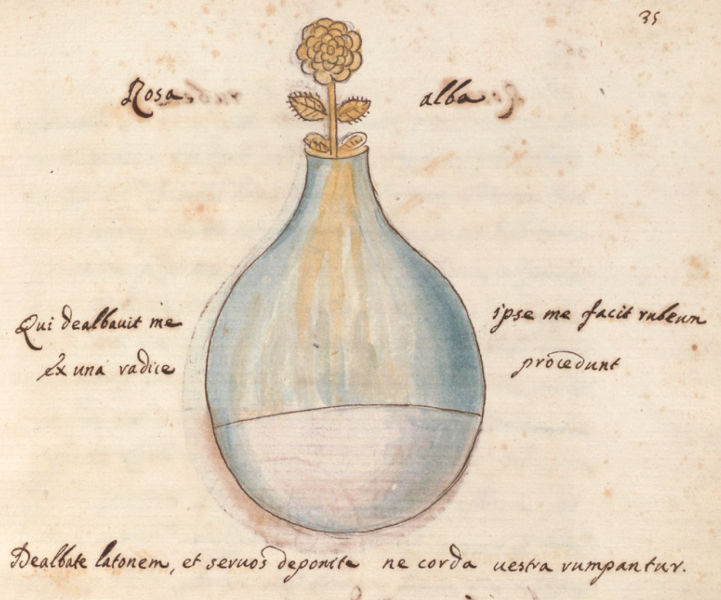 35
Rosa alba
Qui dealbavit me ipse me facit rubeum
Ex una radice procedunt
Dealbate latonem, et servos deponite ne corda vestra rumpantur.